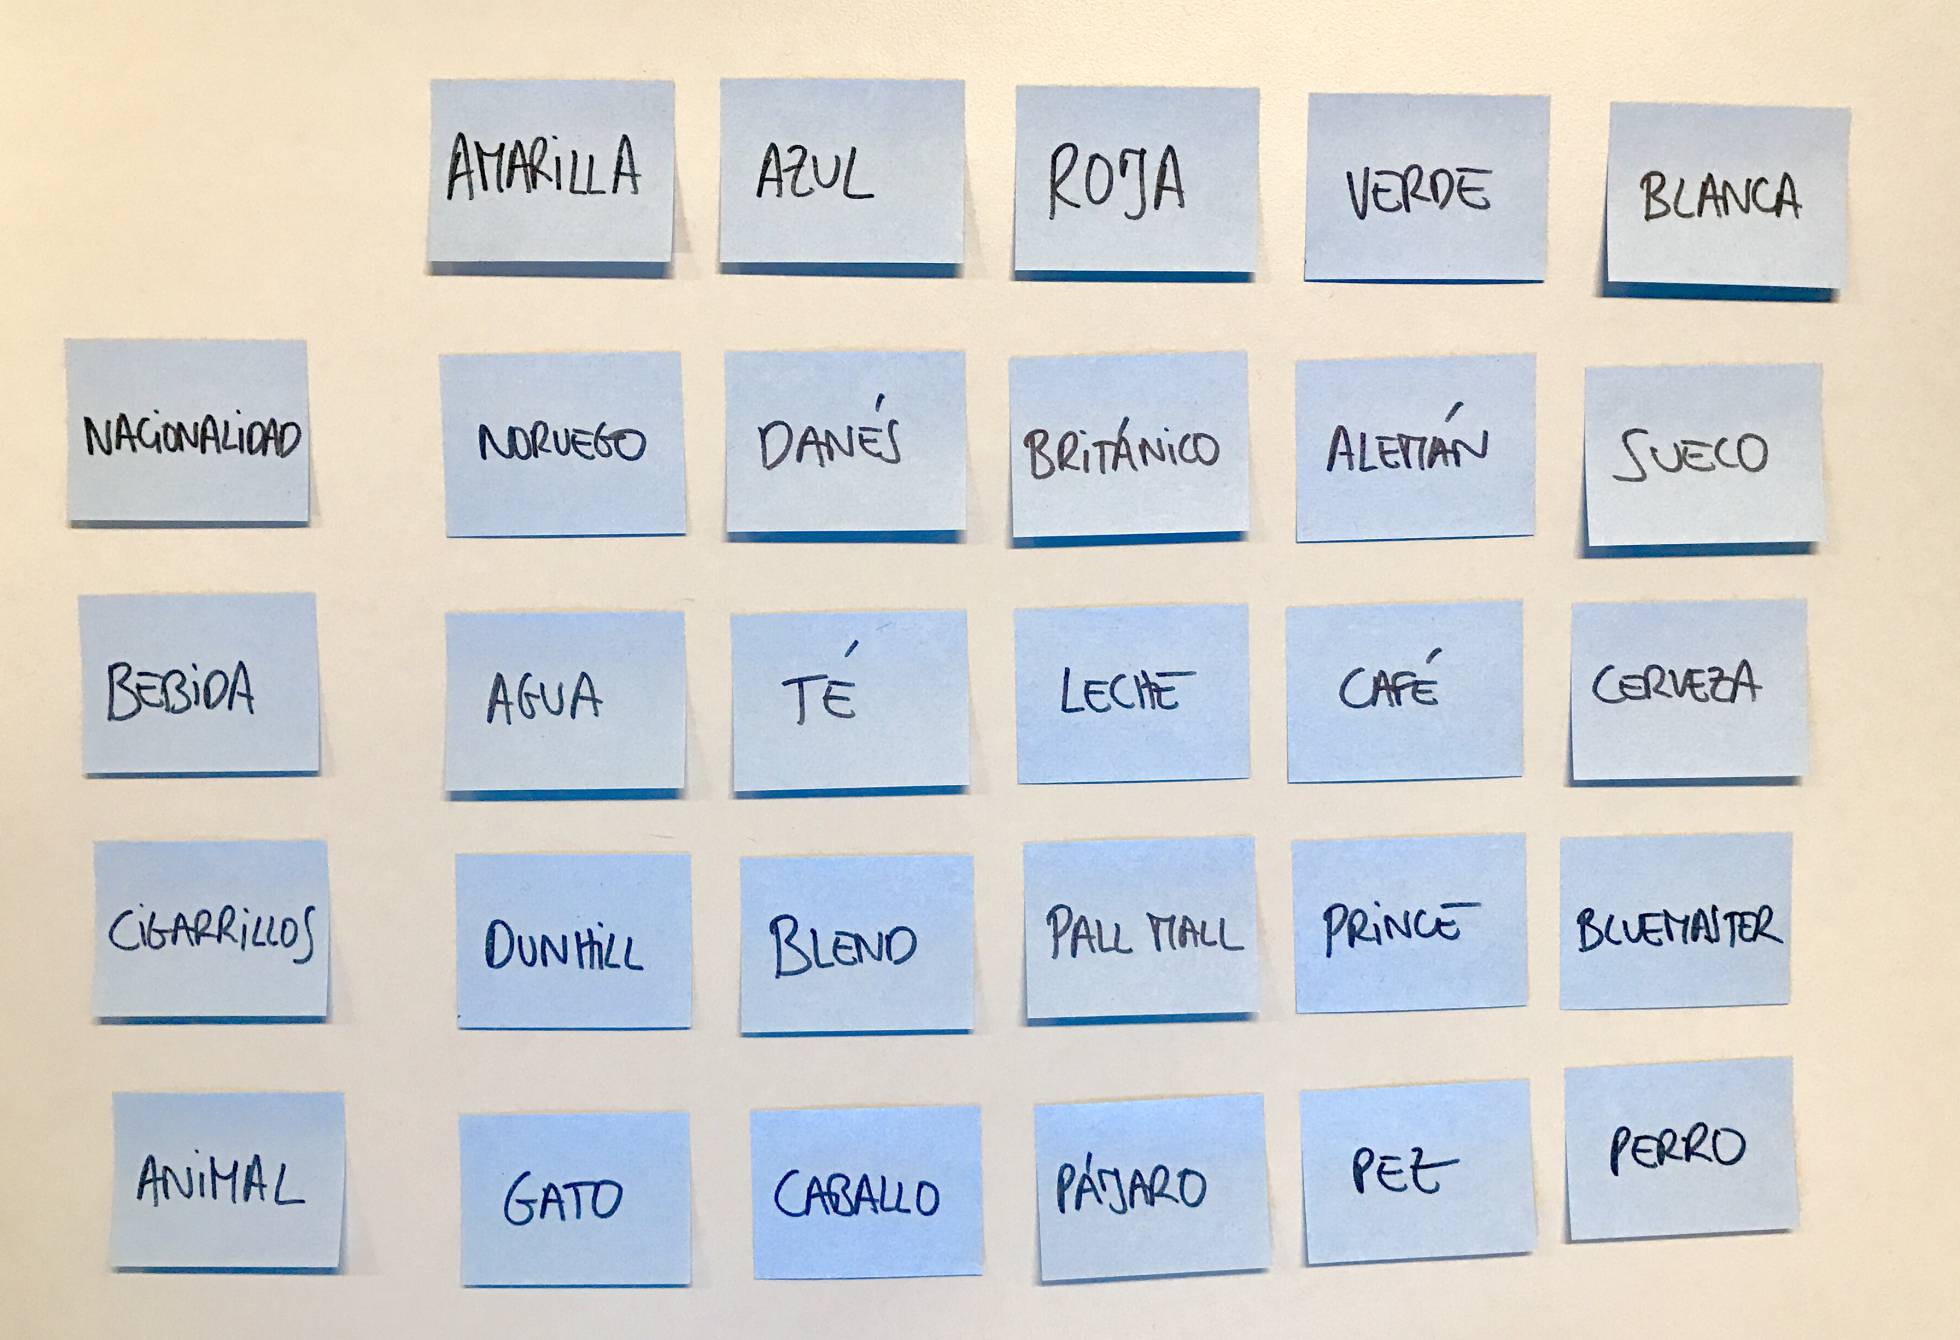 AMARILLA AZUL ROJA VERDE BLANCA
NACIONALIDAD NORUEGO DANÉS BRITÁNICO ALEMÁN SUECO
BEBIDA AGUA TÉ LECHE CAFÉ CERVEZA
CIGARRILLOS DUNHILL BLEND PALL MALL PRINCE BLUEMASTER
ANIMAL GATO CABALLO PÁJARO PEZ PERRO